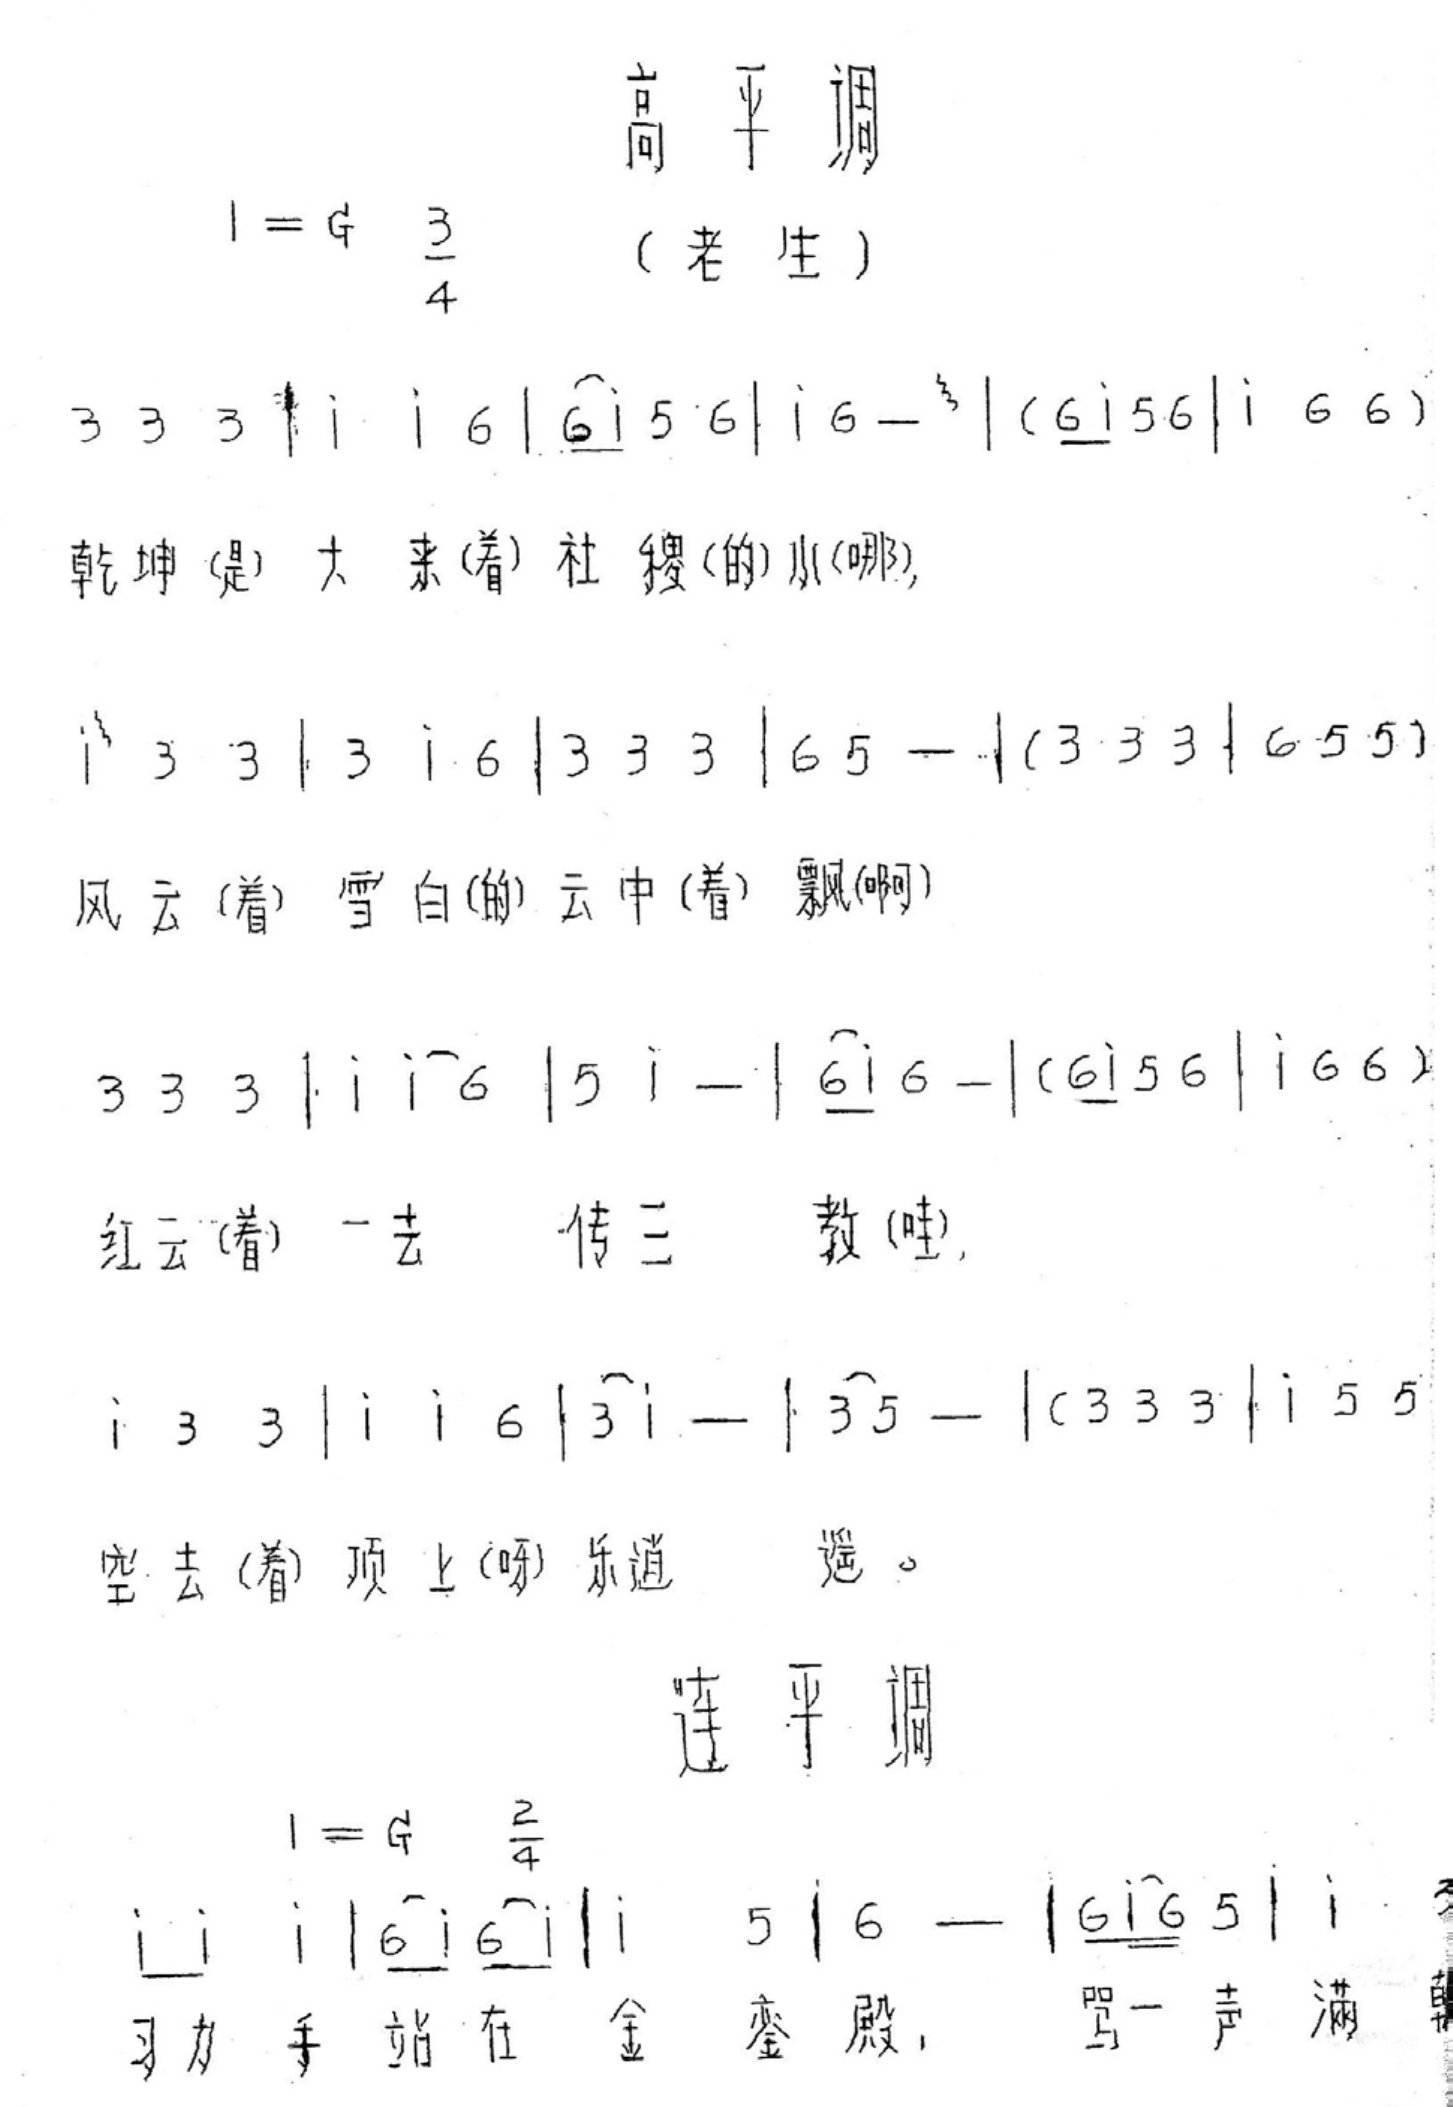 高平调
1=G 3/4 （老生）
3 3 3 | i i 6 | 6i 5 6 | i 6 — | (6i 5 6 | i 6 6)
乾坤(是)大来(着)社稷(的)水(哪),
i 3 3 | 3 i 6 | 3 3 3 | 6 5 — | (3 3 3 | 6 5 5)
风云(着)雪白(的)云中(着)飘(啊)
3 3 3 | i i 6 | 5 i — | 6i 6 — | (6i 5 6 | i 6 6)
红云(着)一去传三教(哇),
i 3 3 | i i 6 | 3 i — | 3 5 — | (3 3 3 | i 5 5
空去(着)顶上(呀)乐逍遥。
连平调
1=G 2/4
i i i | 6 i 6 i | i 5 | 6 — | 6i6 5 | i
手站在金銮殿, 骂一声满朝